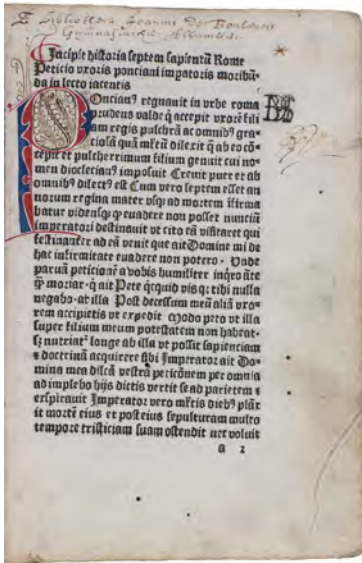 Bibliotheca Joannis
Incipit historia septem sapientū Rome
Peticio vxoris ponciani imꝑatoris moribū-
da in lecto iacentis
POncianꝰ regnauit in vrbe roma
prudens valde q̄ accepit vxorē fili
am regis pulchrā ac omnibꝰ gra-
ciosā quā mł̄tū dilexit q̄ ab eo cō-
cepit et pulcherrimum filium genuit cui no-
men dioclecianꝰ imposuit Creuit puer et ab
omnibꝰ dilectꝰ est Cum vero septem esset an
norum regina mater vsqꝫ ad mortem īfirma
batur vidensqꝫ ꝙ euadere non posset nunciū
imperatori destinauit vt cito eā visitaret qui
festinanter ad eā venit que ait Domine mi de
hac infirmitate euadere non potero · Vnde
paruā peticionē a vobis humiliter inq̄ro āte
ꝙ moriar · q̄ ait Pete q̇cquid vis qꝛ tibi nulla
negabo · at illa Post decessum meū aliā vxo-
rem accipietis vt expedit modo peto vt illa
super filium meum potestatem non habeat ·
sꝫ nutriatᷣ longe ab illa vt possit sapienciam
⁊ doctrinā acquirere sibi Imperator ait Do-
mina mea dilcā vestrā peticōnem per omnia
adimplebo hijs dictis vertit se ad parietem ⁊
exspirauit Imperator vero mł̄tis diebꝰ plāx̄
it mortē eius et post eius sepulturam multo
tempore tristiciam suam ostendit nec voluit